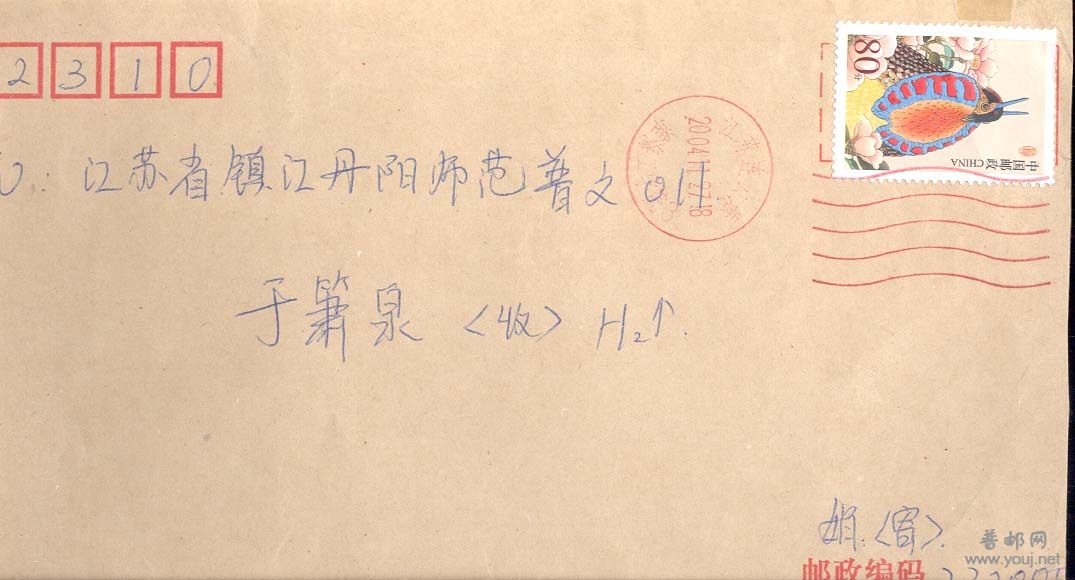 2310
江苏省镇江丹阳师范普文011
于箫泉〈收〉H₂↑.
80分
中国邮政 CHINA
2004.11.27.18
江苏连云港
娟.〈寄〉.
普邮网
www.youj.net
邮政编码